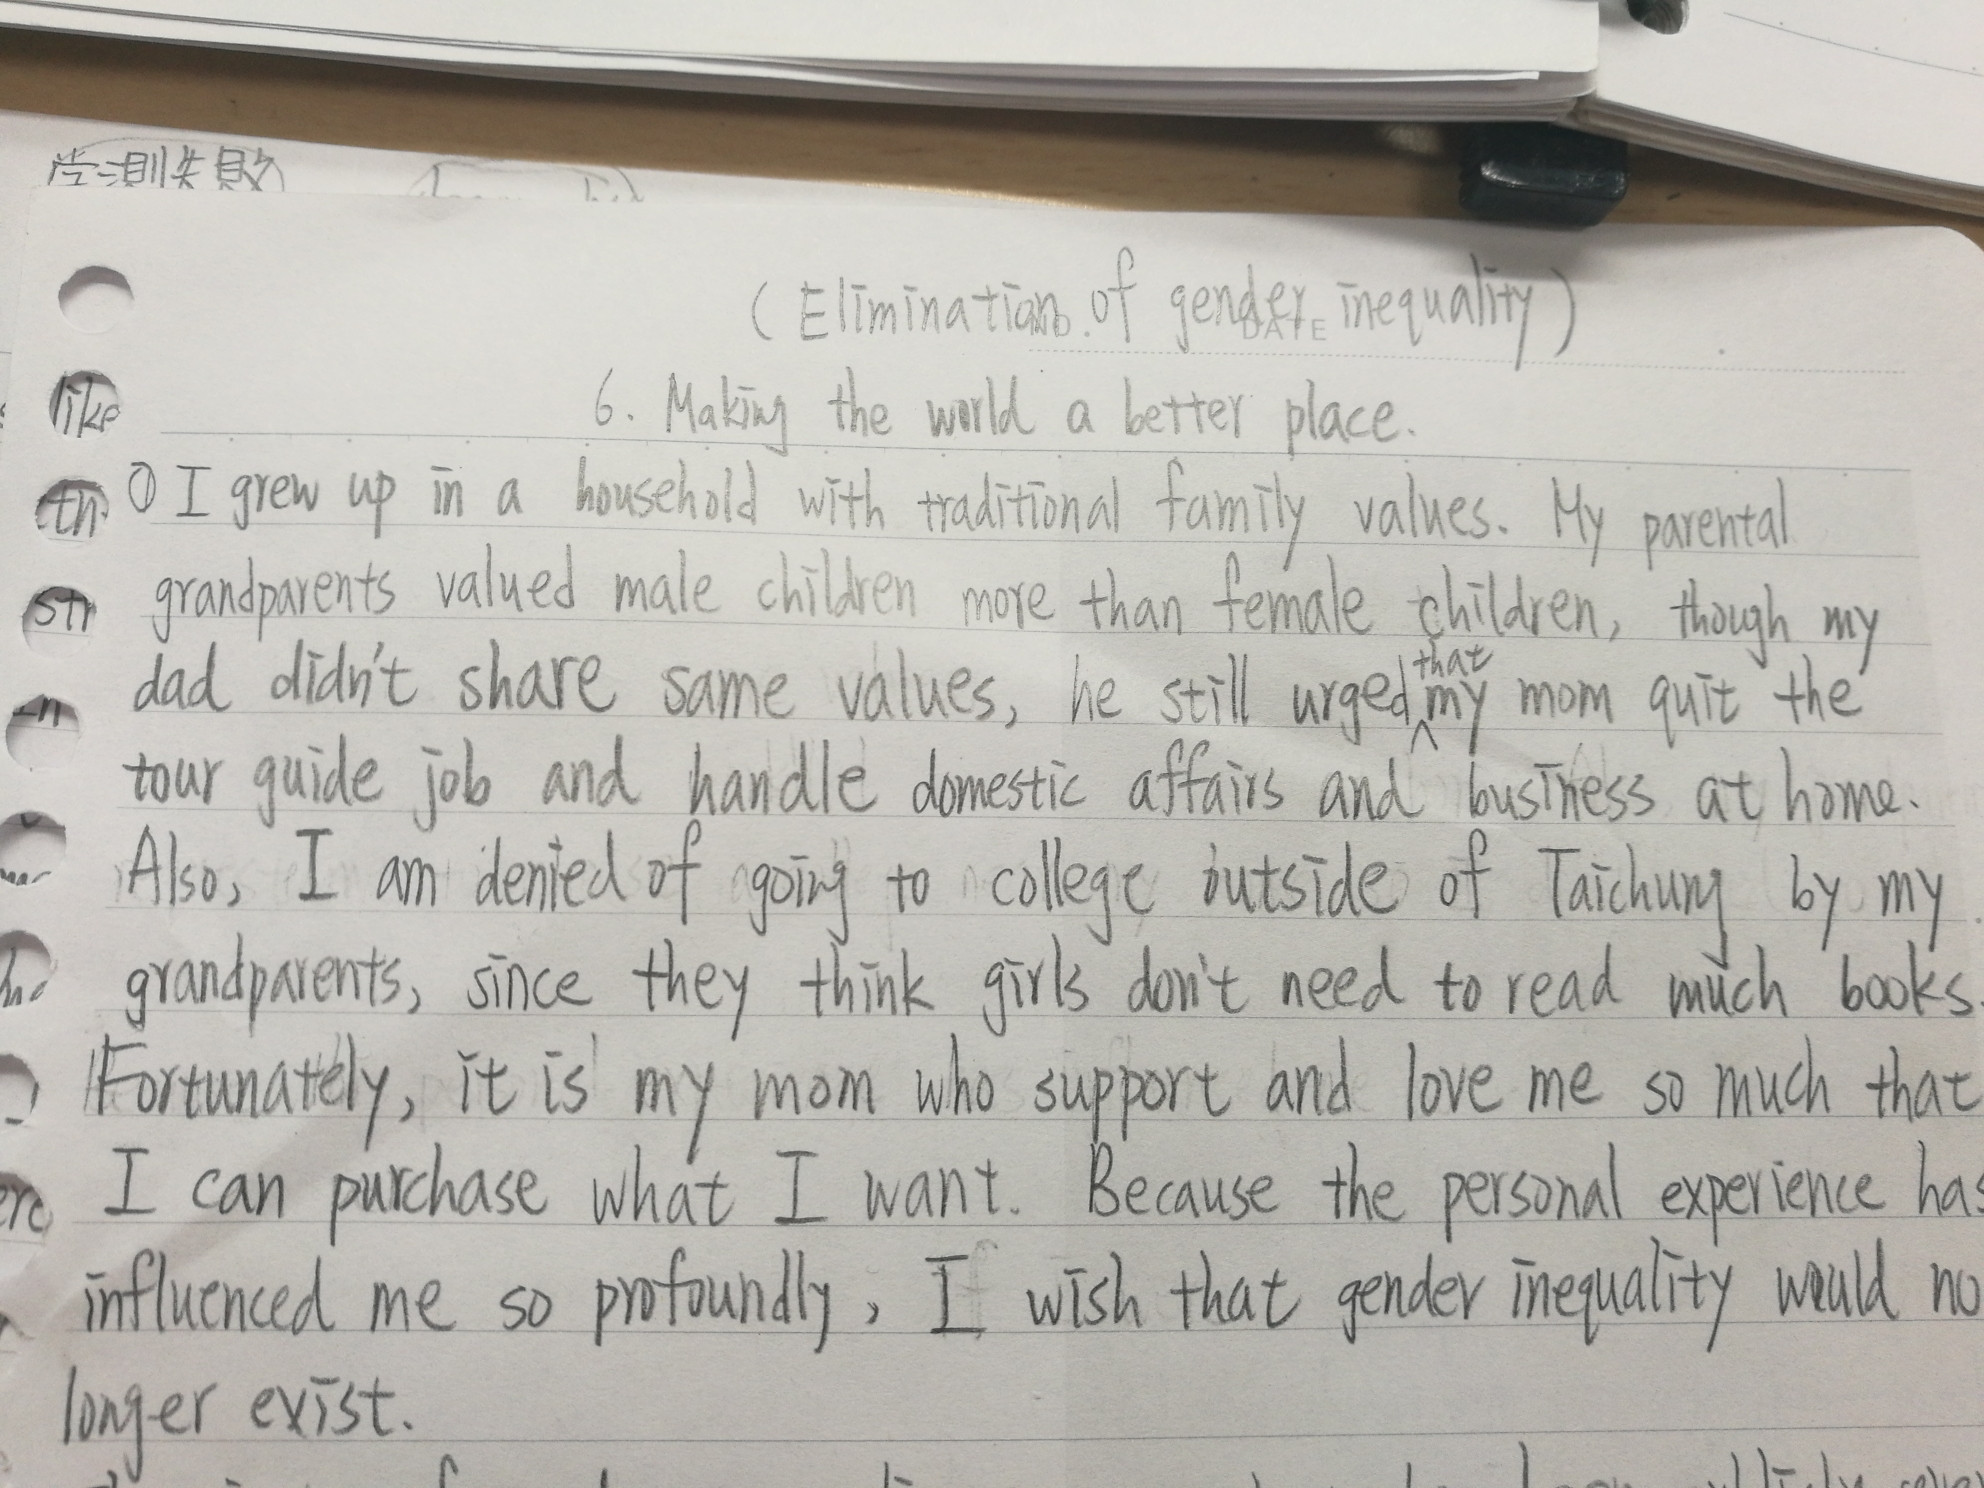 学測失敗
(Elimination of gender inequality)
DATE
6. Making the world a better place.
like
① I grew up in a household with traditional family values. My parental
th
grandparents valued male children more than female children, though my
str
dad didn't share same values, he still urged that my mom quit the
tour guide job and handle domestic affairs and business at home.
Also, I am denied of going to college outside of Taichung by my
grandparents, since they think girls don't need to read much books.
Fortunately, it is my mom who support and love me so much that
I can purchase what I want. Because the personal experience has
influenced me so profoundly, I wish that gender inequality would no
longer exist.